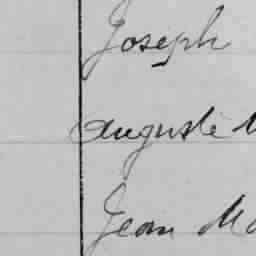 Joseph
Auguste
Jean Ma